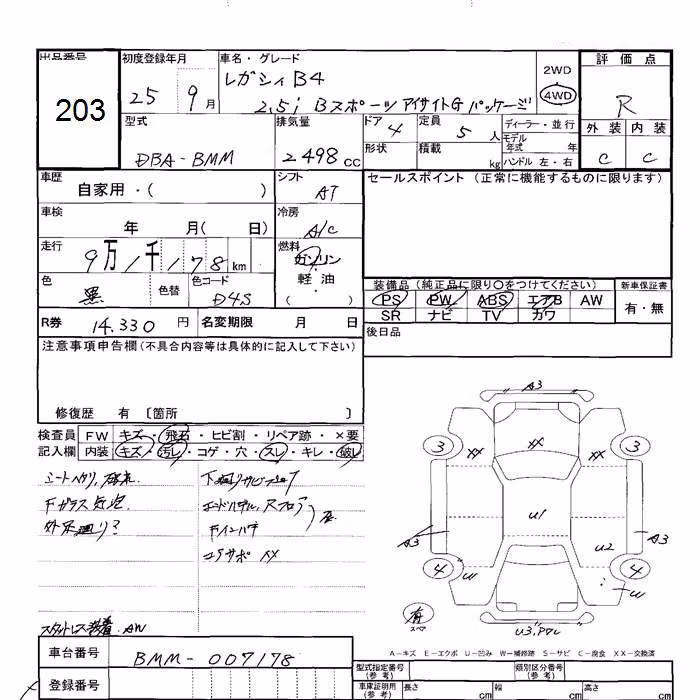 出品番号 初度登録年月 車名・グレード 評価点
203 25 9月 レガシィB4 2WD
2.5i Bスポーツ アイサイトG パッケージ 4WD R
型式 排気量 ドア 4 定員 5人 ディーラー・並行 外装 内装
DBA-BMM 2498cc 形状 積載 kg モデル年式 年 ハンドル 左・右 C C
車歴 自家用・( ) シフト AT セールスポイント (正常に機能するものに限ります)
車検 年 月( 日) 冷房 A/C
走行 9万1千178km 燃料 ガソリン
軽・油
( )
色 黒 色替 色コード D4S 装備品(純正品に限り○をつけてください) 新車保証書
PS PW ABS エアB AW 有・無
SR ナビ TV カワ
R券 14.330円 名変期限 月 日 後日品
注意事項申告欄(不具合内容等は具体的に記入して下さい)
修復歴 有 〔箇所 〕
検査員 FW キズ・飛石・ヒビ割・リペア跡・×要
記入欄 内装 キズ・汚レ・コゲ・穴・スレ・キレ・破レ
シートヘタリ,
Fガラス気泡.
下廻りサビ
Fインパネ
コアサポ XX
スタットレス装着 AW
A3
3 XX XX XX 3
U1
A3 U2 A3
4 W 4 W
有
スペア
U3,
A-キズ E-エクボ U-凹み W-補修跡 S-サビ C-腐食 XX-交換済
車台番号 BMM-007178
登録番号
型式指定番号(参考) 類別区分番号(参考)
車庫証明用(参考) 長さ cm 幅 cm 高さ cm